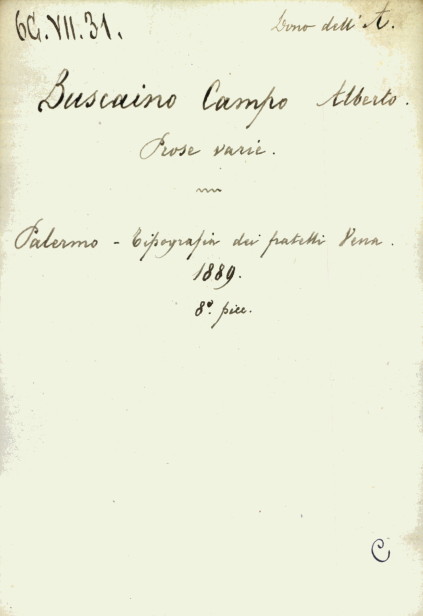 6G.VII.31.
Dono dell' A.
Buscaino Campo Alberto.
Prose varie.
Palermo - Tipografia dei fratelli Vena.
1889.
8º. picc.
C